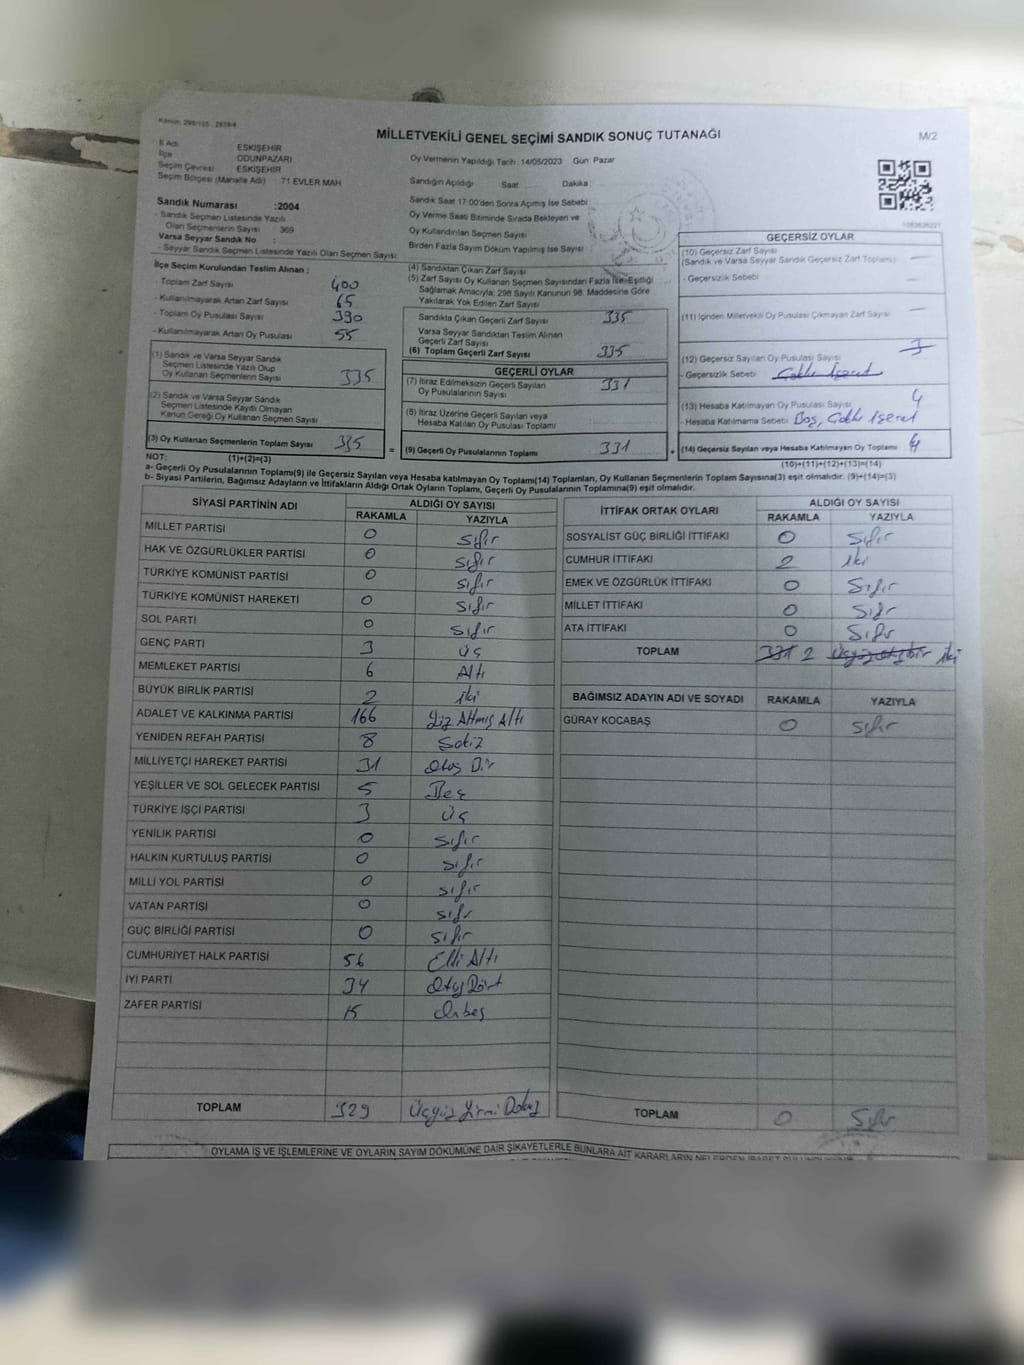 MİLLETVEKİLİ GENEL SEÇİMİ SANDIK SONUÇ TUTANAĞI
M/2
İl Adı ESKİŞEHİR
İlçe ODUNPAZARI
Seçim Çevresi ESKİŞEHİR
Seçim Bölgesi (Mahalle Adı) 71 EVLER MAH
Oy Vermenin Yapıldığı Tarih :14/05/2023 Gün: Pazar
Sandığın Açıldığı Saat Dakika
Sandık Saat 17:00'den Sonra Açılmış İse Sebebi
Oy Verme Saati Bitiminde Sırada Bekleyen ve
Oy Kullandırılan Seçmen Sayısı
Birden Fazla Sayım Döküm Yapılmış İse Sayısı
Sandık Numarası :2004
- Sandık Seçmen Listesinde Yazılı
Olan Seçmenlerin Sayısı 369
Varsa Seyyar Sandık No :
- Seyyar Sandık Seçmen Listesinde Yazılı Olan Seçmen Sayısı
İlçe Seçim Kurulundan Teslim Alınan ;
- Toplam Zarf Sayısı 400
- Kullanılmayarak Artan Zarf Sayısı 65
- Toplam Oy Pusulası Sayısı 390
- Kullanılmayarak Artan Oy Pusulası 55
(1) Sandık ve Varsa Seyyar Sandık
Seçmen Listesinde Yazılı Olup
Oy Kullanan Seçmenlerin Sayısı 335
(2) Sandık ve Varsa Seyyar Sandık
Seçmen Listesinde Kayıtlı Olmayan
Kanun Gereği Oy Kullanan Seçmen Sayısı
(3) Oy Kullanan Seçmenlerin Toplam Sayısı 335 =
(4) Sandıktan Çıkan Zarf Sayısı
(5) Zarf Sayısı Oy Kullanan Seçmen Sayısından Fazla İse, Eşitliği
Sağlamak Amacıyla, 298 Sayılı Kanunun 98. Maddesine Göre
Yakılarak Yok Edilen Zarf Sayısı
Sandıkta Çıkan Geçerli Zarf Sayısı 335
Varsa Seyyar Sandıktan Teslim Alınan
Geçerli Zarf Sayısı
(6) Toplam Geçerli Zarf Sayısı 335
GEÇERLİ OYLAR
(7) İtiraz Edilmeksizin Geçerli Sayılan
Oy Pusulalarının Sayısı 331
(8) İtiraz Üzerine Geçerli Sayılan veya
Hesaba Katılan Oy Pusulası Toplamı
(9) Geçerli Oy Pusulalarının Toplamı 331 +
GEÇERSİZ OYLAR
(10) Geçersiz Zarf Sayısı
(Sandık ve Varsa Seyyar Sandık Geçersiz Zarf Toplamı)
- Geçersizlik Sebebi:
(11) İçinden Milletvekili Oy Pusulası Çıkmayan Zarf Sayısı
(12) Geçersiz Sayılan Oy Pusulası Sayısı
- Geçersizlik Sebebi:
(13) Hesaba Katılmayan Oy Pusulası Sayısı 4
- Hesaba Katılmama Sebebi: Boş, Çoklu İşaret
(14) Geçersiz Sayılan veya Hesaba Katılmayan Oy Toplamı 4
NOT: (1)+(2)=(3) (10)+(11)+(12)+(13)=(14)
a- Geçerli Oy Pusulalarının Toplamı(9) ile Geçersiz Sayılan veya Hesaba katılmayan Oy Toplamı(14) Toplamları, Oy Kullanan Seçmenlerin Toplam Sayısına(3) eşit olmalıdır. (9)+(14)=(3)
b- Siyasi Partilerin, Bağımsız Adayların ve İttifakların Aldığı Ortak Oyların Toplamı, Geçerli Oy Pusulalarının Toplamına(9) eşit olmalıdır.
SİYASİ PARTİNİN ADI ALDIĞI OY SAYISI
RAKAMLA YAZIYLA
MİLLET PARTİSİ 0 Sıfır
HAK VE ÖZGÜRLÜKLER PARTİSİ 0 Sıfır
TÜRKİYE KOMÜNİST PARTİSİ 0 Sıfır
TÜRKİYE KOMÜNİST HAREKETİ 0 Sıfır
SOL PARTİ 0 Sıfır
GENÇ PARTİ 3 Üç
MEMLEKET PARTİSİ 6 Altı
BÜYÜK BİRLİK PARTİSİ 2 iki
ADALET VE KALKINMA PARTİSİ 166 Yüz Altmış Altı
YENİDEN REFAH PARTİSİ 8 Sekiz
MİLLİYETÇİ HAREKET PARTİSİ 31 Otuz Bir
YEŞİLLER VE SOL GELECEK PARTİSİ 5 Beş
TÜRKİYE İŞÇİ PARTİSİ 3 Üç
YENİLİK PARTİSİ 0 Sıfır
HALKIN KURTULUŞ PARTİSİ 0 Sıfır
MİLLİ YOL PARTİSİ 0 Sıfır
VATAN PARTİSİ 0 Sıfır
GÜÇ BİRLİĞİ PARTİSİ 0 Sıfır
CUMHURİYET HALK PARTİSİ 56 Elli Altı
İYİ PARTİ 34 Otuz Dört
ZAFER PARTİSİ 15 Onbeş
TOPLAM 329 Üçyüz Yirmi Dokuz
İTTİFAK ORTAK OYLARI ALDIĞI OY SAYISI
RAKAMLA YAZIYLA
SOSYALİST GÜÇ BİRLİĞİ İTTİFAKI 0 Sıfır
CUMHUR İTTİFAKI 2 iki
EMEK VE ÖZGÜRLÜK İTTİFAKI 0 Sıfır
MİLLET İTTİFAKI 0 Sıfır
ATA İTTİFAKI 0 Sıfır
TOPLAM 331 2 Üçyüzotuzbir iki
BAĞIMSIZ ADAYIN ADI VE SOYADI RAKAMLA YAZIYLA
GÜRAY KOCABAŞ 0 Sıfır
TOPLAM 0 Sıfır
OYLAMA İŞ VE İŞLEMLERİNE VE OYLARIN SAYIM DÖKÜMÜNE DAİR ŞİKAYETLERLE BUNLARA AİT KARARLARIN